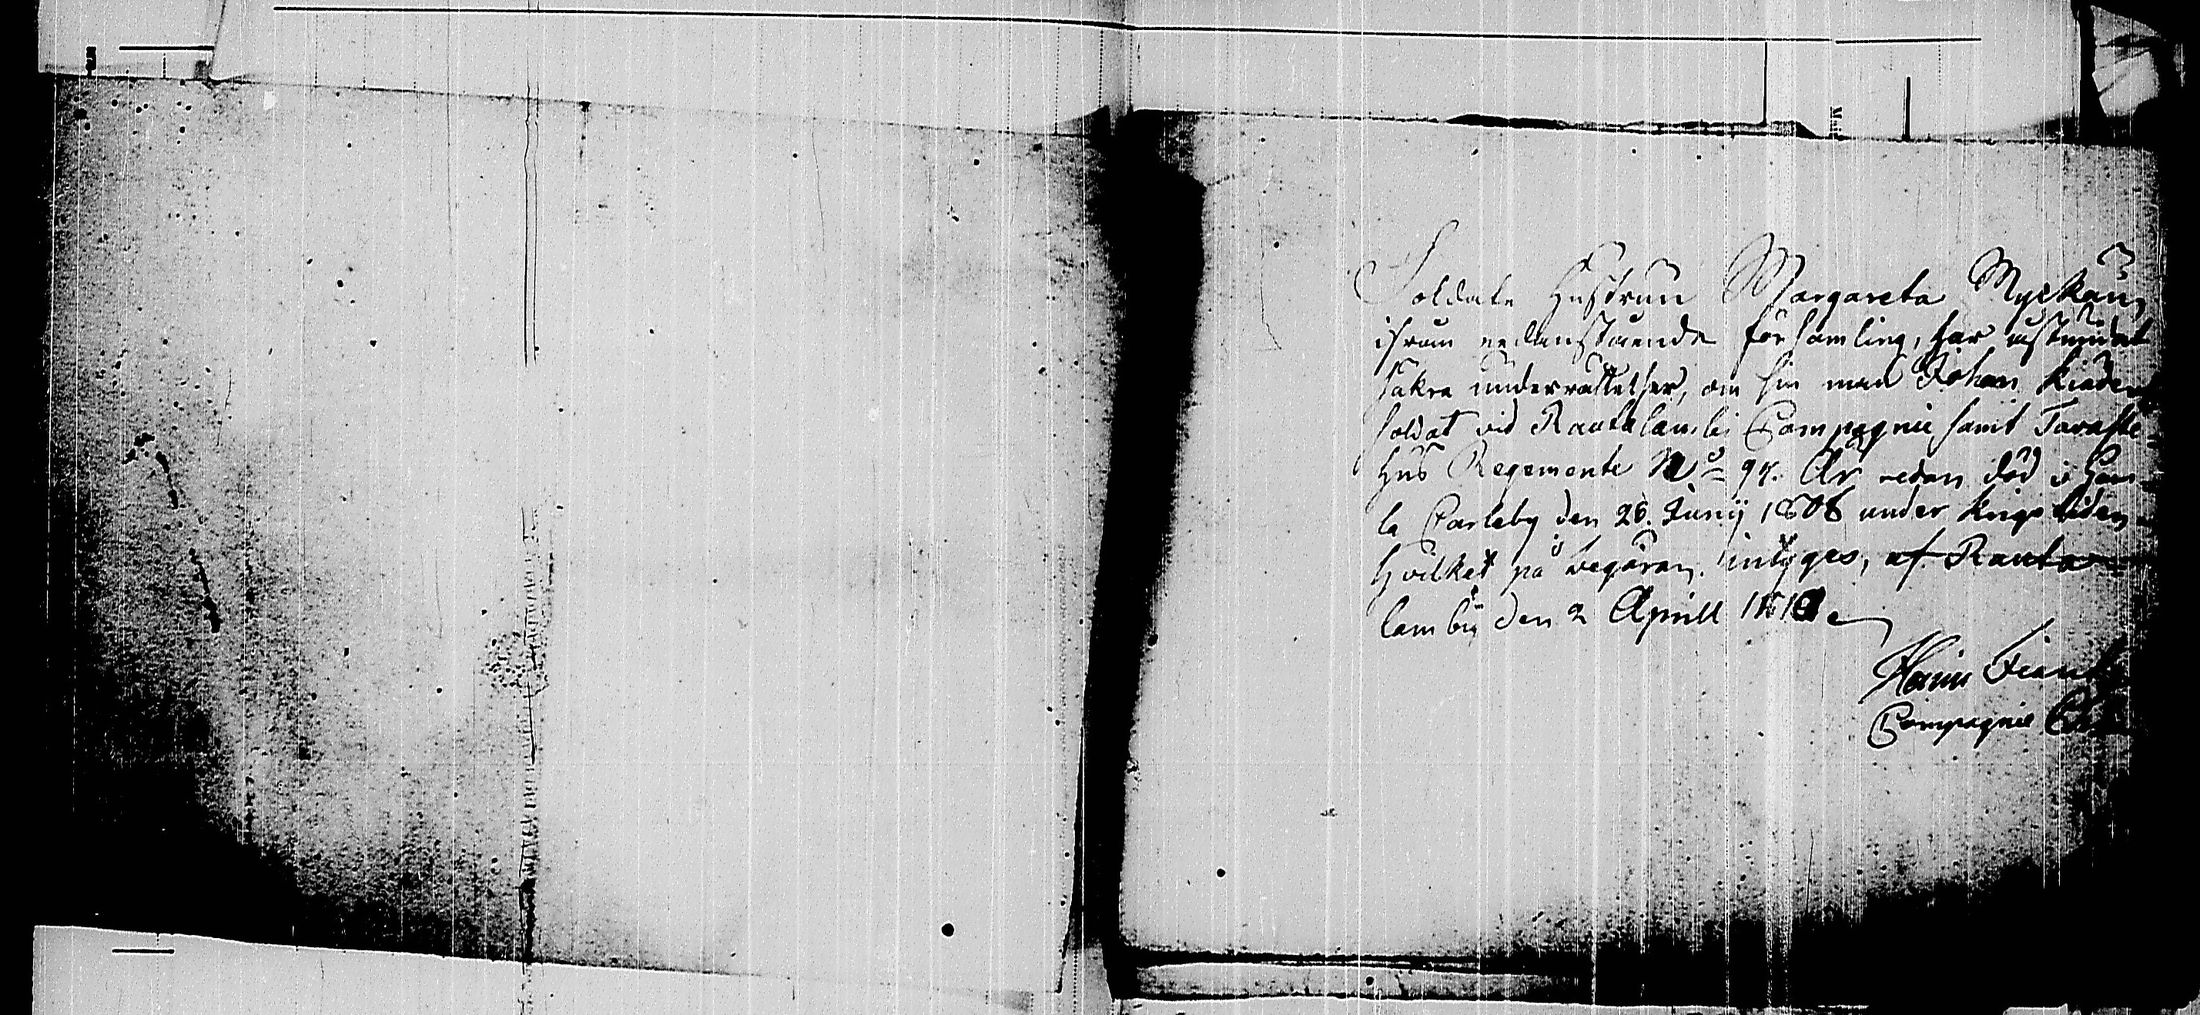 Soldate Hustrun Margareta Myckäin
ifrån nedanstående församling, har åstundat
säkra underrättelser, om sin man Johan Kinder
soldat vid Rautalambi Compagnie samt Tavaste=
hus Regemente No 97. Är redan död i Gam=
la Carleby den 26. Junij 1808 under krigs tiden
Hvilket på begäran intÿges, af Rauta
lambij den 2 Aprill 181
Compagnie